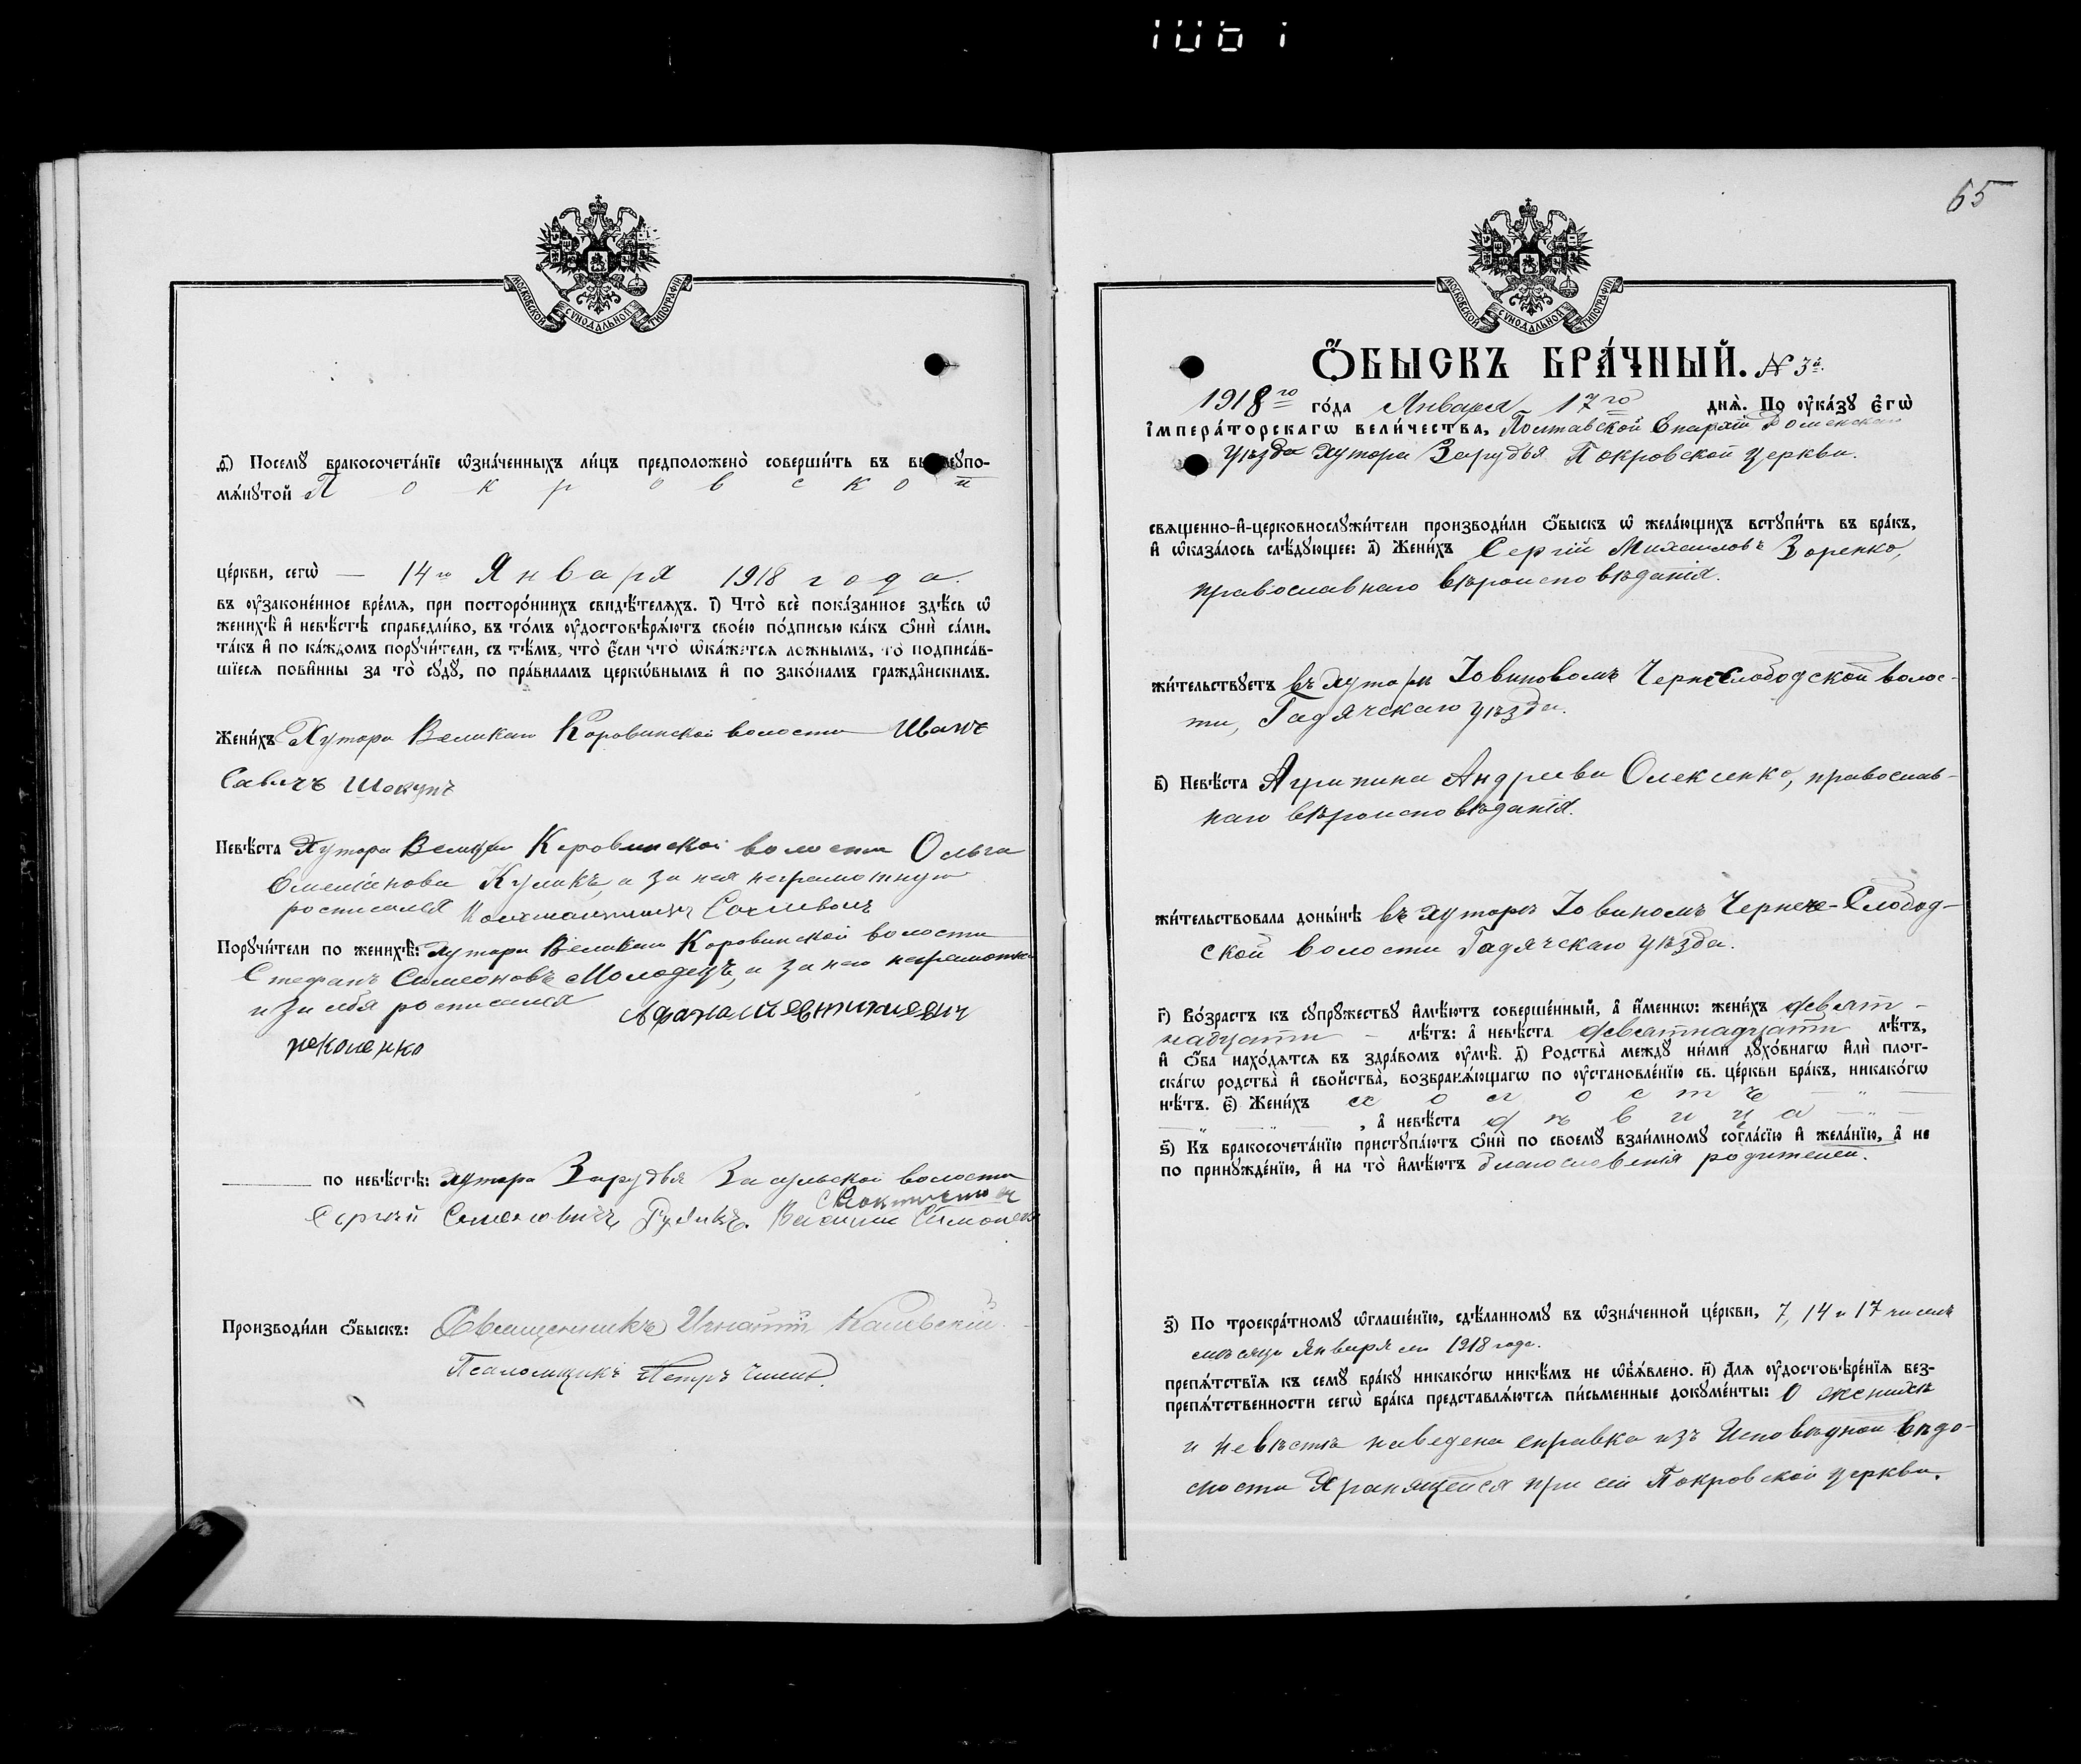 1061
МОСКОВСКОЙ СѴНОДАЛЬНОЙ ТИПОГРАФІИ
д҃) Посемꙋ бракосочета́нїе ѡ҆зна́ченныхъ ли́цъ предположено̀ соверши́ть въ вышеꙋпо-
мѧ́нꙋтой Покровской
це́ркви, сегѡ̀ — 14го Января 1918 года.
въ ᲂу҆законе́нное вре́мѧ, при посторо́ннихъ свидѣ́телѧхъ. і҃) Что̀ всѐ пока́занное здѣ́сь ѡ҆
женихѣ̀ и҆ невѣ́стѣ справедли́во, въ то́мъ ᲂу҆достовѣрѧ́ютъ свое́ю по́дписью ка́къ ѻ҆нѝ са́ми.
та́къ и҆ по ка́ждомъ порꙋчи́тели, съ тѣ́мъ, что̀ є҆́сли что̀ ѡ҆ка́жетсѧ ло́жнымъ, то̀ подписа́в-
шїесѧ пови́нны за то̀ сꙋдꙋ̀, по пра́виламъ церко́внымъ и҆ по зако́намъ гражда́нскимъ.
Жени́хъ Хутора Великаго Коровинской волости Иванъ
Савичъ Шокунъ
Невѣ́ста Хутора Коровинской волости Ольга
Куликъ, а за нея неграмотную
росписался
Порꙋчи́тели по женихѣ̀: хутора Великаго Коровинской волости
Стефанъ Симеоновъ Молодецъ, а за него неграмотна
и за себя росписался
по невѣ́стѣ: хутора Зарудья Засульской волости
Сергѣй Рудикъ.
Производи́ли ѻ҆́быскъ: Священникъ Игнатій
Псаломщикъ Петръ
65
МОСКОВСКОЙ СѴНОДАЛЬНОЙ ТИПОГРАФІИ
Ѻ҆́БЫСКЪ БРА́ЧНЫЙ. № 3й.
1918го го́да Января 17го днѧ̀. По ᲂу҆ка́зꙋ Є҆гѡ̀
І҆мпера́торскагѡ вели́чества, Полтавской Епархіи Роменскаго
уѣзда хутора Зарудья Покровской церкви.
свѧщенно-и҆-церковнослꙋжи́тели производи́ли ѻ҆́быскъ ѡ҆ жела́ющихъ встꙋпи́ть въ бра́къ,
и҆ ѡ҆каза́лось слѣ́дꙋющее: а҃) Жени́хъ Сергій Михаиловъ Зоренко,
православнаго вѣроисповѣданія.
жи́тельствꙋетъ въ хуторѣ Іовиновомъ Чернеслободской волос-
ти, Гадячскаго уѣзда.
в҃) Невѣ́ста Агрипина Андреева Олексенко, православ-
наго вѣроисповѣданія.
жи́тельствовала доны́нѣ въ хуторѣ Іовиномъ Чернече-Слобод-
ской волости Гадячскаго уѣзда.
г҃) Во́зрастъ къ сꙋпрꙋ́жествꙋ и҆мѣ́ютъ соверше́нный, а҆ и҆́меннѡ: жени́хъ девят-
надцати — лѣ́тъ: а҆ невѣ́ста девятнадцати лѣ́тъ,
и҆ ѻ҆́ба нахо́дѧтсѧ въ здра́вомъ ᲂу҆мѣ̀. д҃) Родства̀ междꙋ̀ ни́ми дꙋхо́внагѡ и҆лѝ плот-
ска́гѡ родства̀ и҆ свойства̀, возбранѧ́ющагѡ по ᲂу҆становле́нїю св. це́ркви бра́къ, никако́гѡ
нѣ́тъ. є҃) Жени́хъ холостъ — " —
— " — " — , а҆ невѣ́ста дѣвица — " —
ѕ҃) Къ бракосочета́нїю пристꙋпа́ютъ ѻ҆нѝ по своемꙋ̀ взаи́мномꙋ согла́сїю и҆ жела́нїю, а҆ не
по принꙋжде́нїю, и҆ на то̀ и҆мѣ́ютъ благословенія родителей.
з҃) По троекра́тномꙋ ѡ҆глаше́нїю, сдѣ́ланномꙋ въ ѡ҆зна́ченной це́ркви, 7, 14 и 17 числъ
мѣсяца Января 1918 года.
препѧ́тствїѧ къ семꙋ̀ бра́кꙋ никако́гѡ никѣ́мъ не ѡ҆б̾ѧ́влено. и҃) Длѧ ᲂу҆достовѣре́нїѧ без-
препѧ́тственности сегѡ̀ бра́ка представлѧ́ютсѧ пи́сьменные докꙋме́нты: О женихѣ
и невѣстѣ наведена справка изъ Исповѣдной вѣдо-
мости хранящейся при сей Покровской церкви.